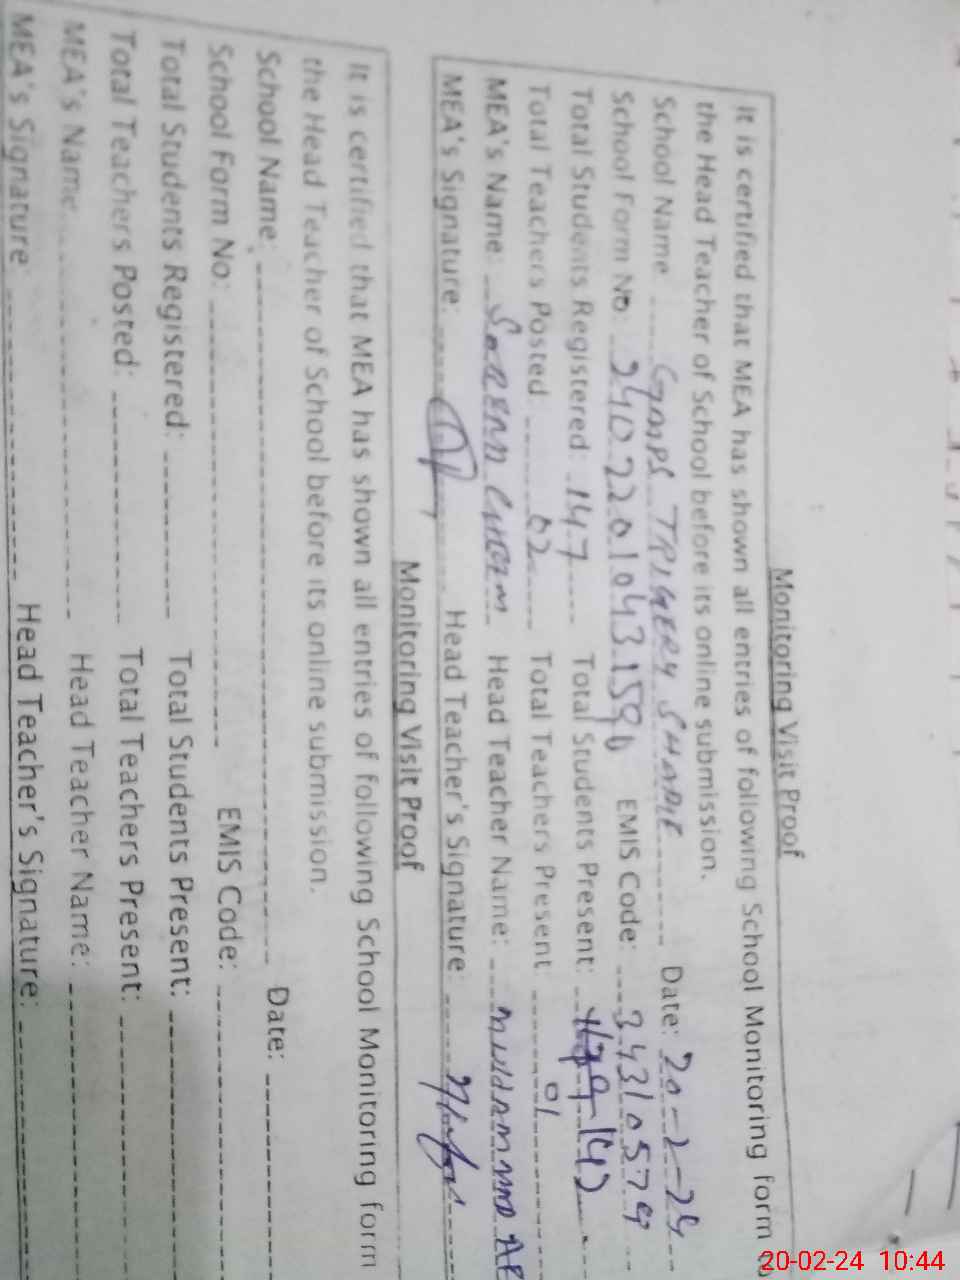 Monitoring Visit Proof
It is certified that MEA has shown all entries of following School Monitoring form to
the Head Teacher of School before its online submission.
School Name: GMPS Date: 20-2-24
School Form No: EMIS Code: 34310579
Total Students Registered: 147 Total Students Present: 142
Total Teachers Posted: 02 Total Teachers Present 01
MEA's Name: Head Teacher Name:
MEA's Signature: Head Teacher's Signature:
Monitoring Visit Proof
It is certified that MEA has shown all entries of following School Monitoring form
the Head Teacher of School before its online submission.
School Name: Date:
School Form No: EMIS Code:
Total Students Registered: Total Students Present:
Total Teachers Posted: Total Teachers Present:
MEA's Name: Head Teacher Name:
MEA's Signature: Head Teacher's Signature:
20-02-24 10:44